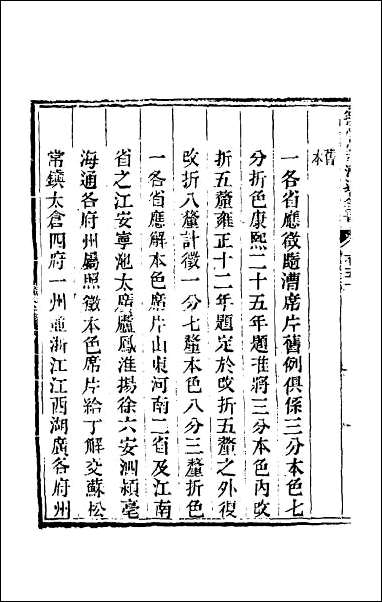 舊本
一各省應徵隨漕席片舊例俱係三分本色七
分折色康熙二十五年題准將三分本色內改
折五釐雍正十二年題定於改折五釐之外復
改折八釐計徵一分七釐本色八分三釐折色
一各省應解本色席片山東河南二省及江南
省之江安寧池太廣廬鳳淮揚徐六安泗潁亳
海通各府州屬照徵本色席片給丁解交蘇松
常鎮太倉四府一州並浙江江西湖廣各府州